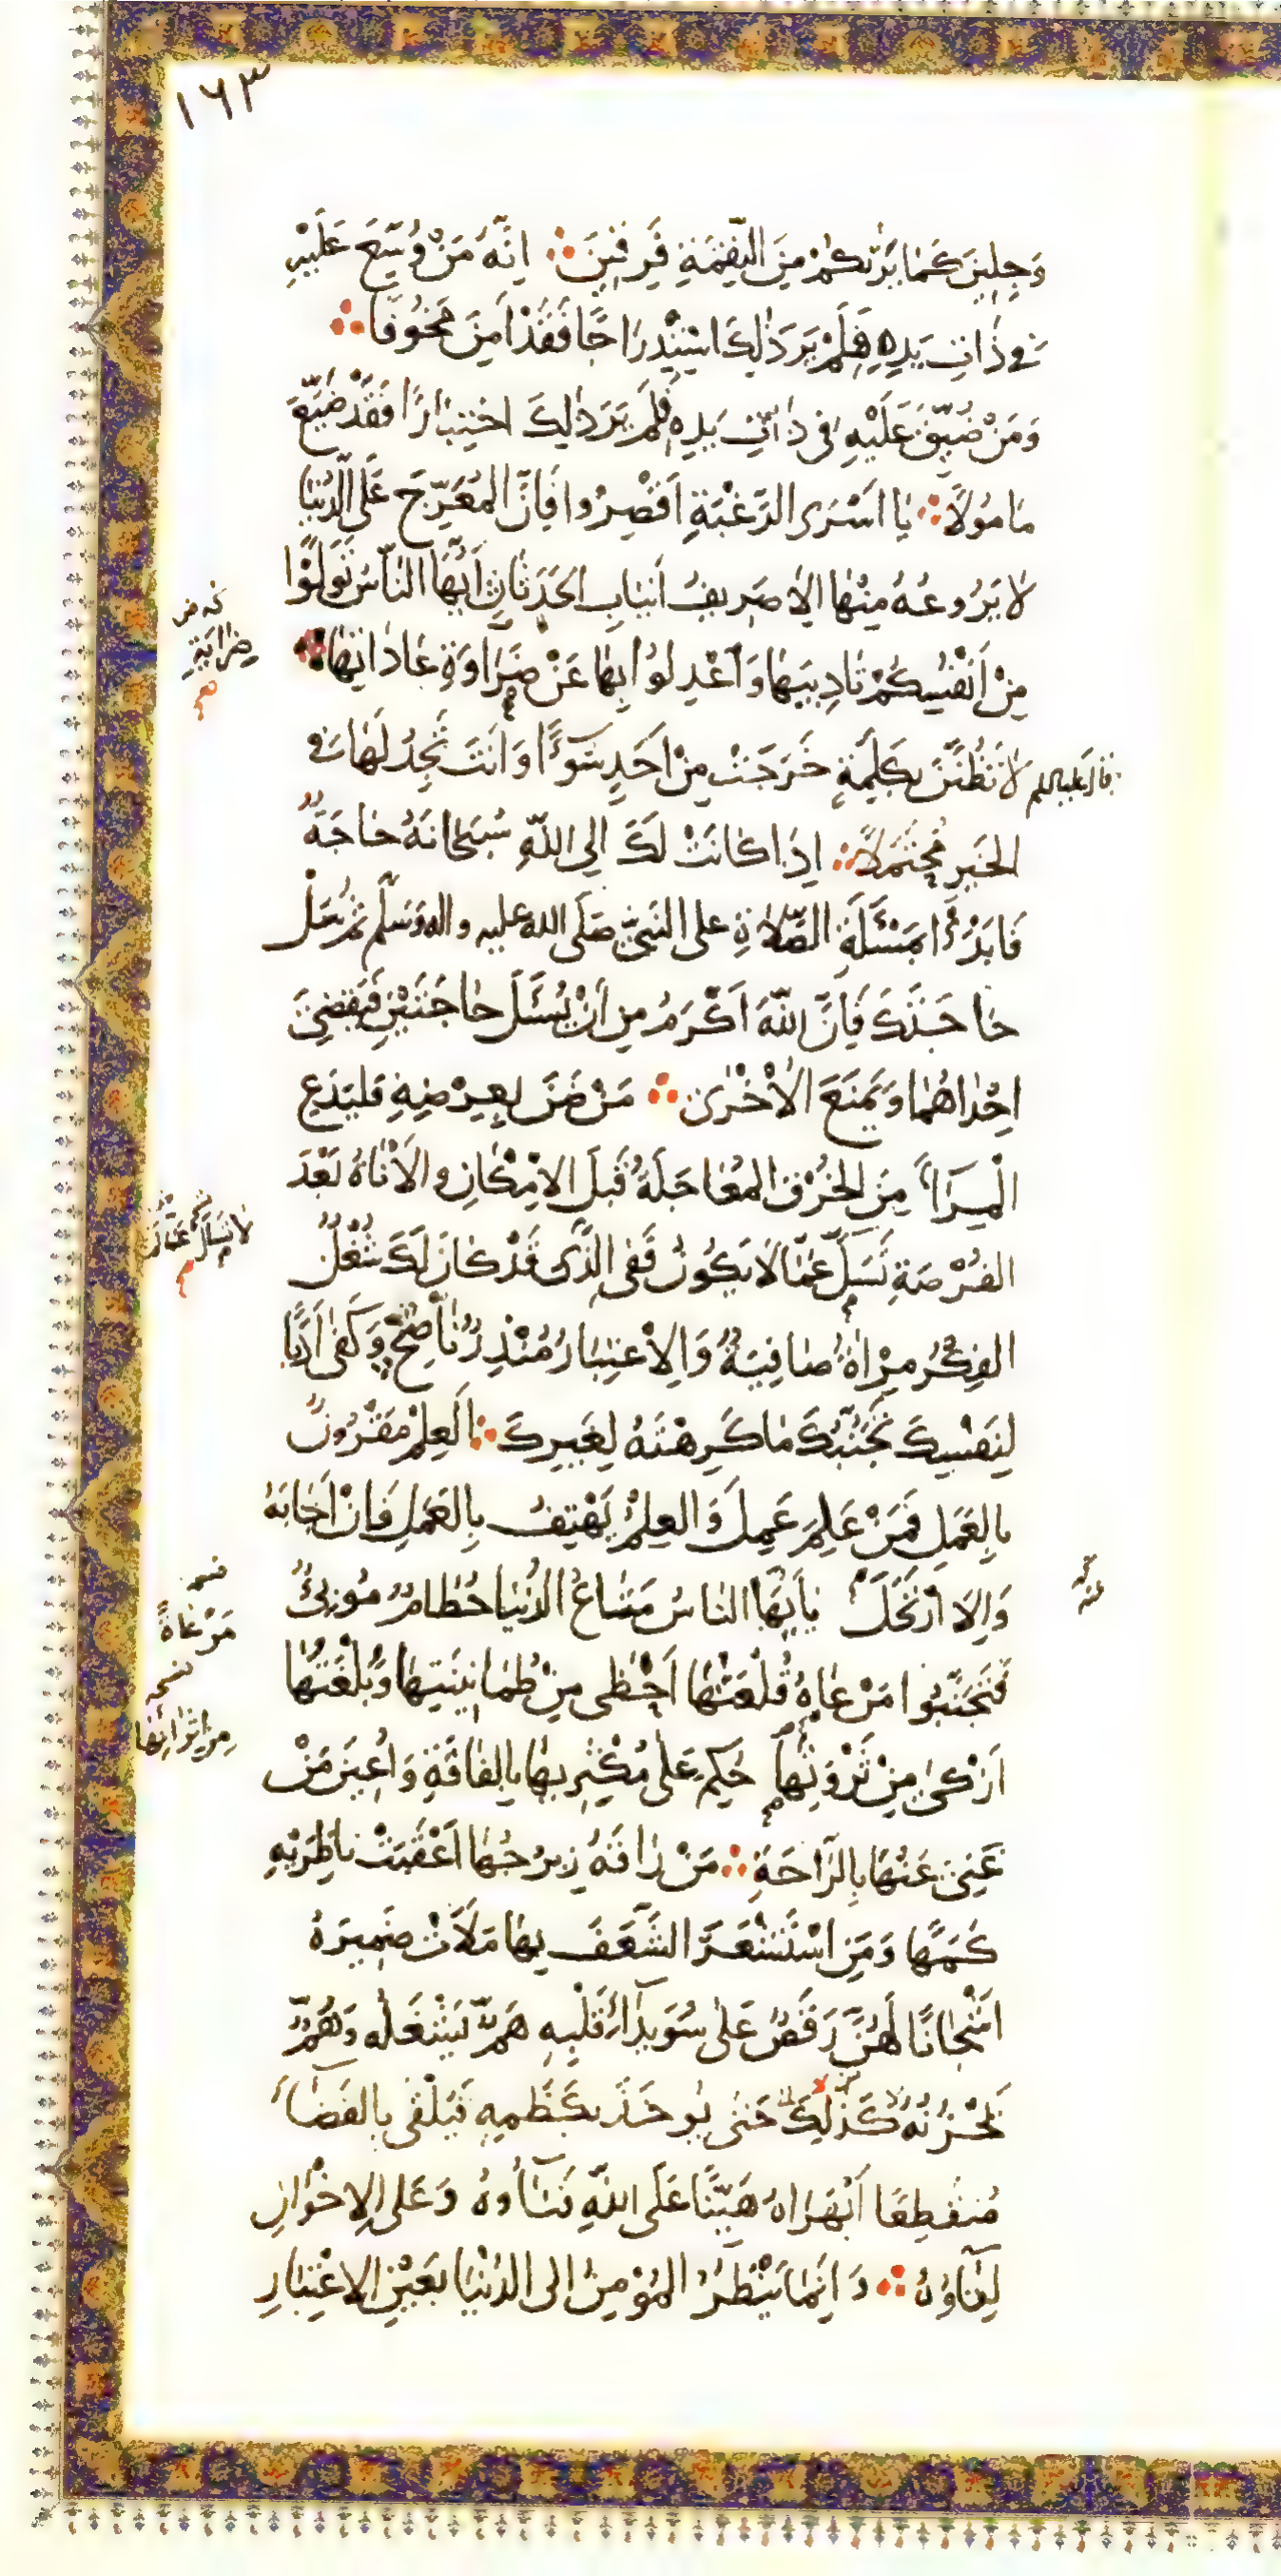 ١٦٣
وَجِلِينَ كَمَا يَرَيٰكُمْ مِنَ النِّقْمَةِ فَرِقِينَ ؞ اِنَّهُ مَنْ وُسِّعَ عَلَيْهِ
فى ذٰاتِ يَدِهِ فَلَمْ يَرَ ذٰلِكَ اسْتِدْرٰاجًا فَقَدْ اَمِنَ مَخُوفًا ؞
وَمَنْ ضُيِّقَ عَلَيْهِ فى ذٰاتِ يَدِهِ فَلَمْ يَرَ ذٰلِكَ اخْتِبٰارًا فَقَدْ ضَيَّعَ
مَامُولاً ؞ يٰا اَسْرَى الرَّغْبَةِ اَقْصِرُوا فَاِنَّ المُعَرِّجَ عَلَى الدُّنْيٰا
لاٰ يَرُوعُهُ مِنْهٰا اِلاّٰ صَرِيفُ اَنْيٰابِ الحَدَثٰانِ اَيُّهَا النّٰاسُ تَوَلَّوْا
مِنْ اَنْفُسِكُمْ تٰادِيبَهٰا وَاعْدِلُوْا بِهٰا عَنْ ضَرَاوَةِ عٰادٰاتِهٰا ؞
ضِرٰايَةِ
م
قال عليه السلم
لاٰ تَظُنَّنَّ بِكَلِمَةٍ خَرَجَتْ مِنْ اَحَدٍ سُوۤءًا وَاَنْتَ تَجِدُ لَهٰا فى
الخَيرِ مُحْتَمَلاً ؞ اِذَا كٰانَتْ لَكَ اِلَى اللّٰهِ سُبْحٰانَهُ حٰاجَةٌ
فَابْدَءْ بِمَسْئَلَةِ الصَّلاٰةِ على النَّبِىِّ صَلَّى الله عليه واله وَسَلَّم ثمَّ سَلْ
حٰاجَتَكَ فَاِنَّ اللّٰهَ اَكْرَمُ مِن اَنْ يُسْئَلَ حٰاجَتَيْنِ فَيَقْضِىَ
اِحْدٰاهُمٰا وَيَمْنَعَ الاُخْرىٰ ؞ مَنْ ضَنَّ بِعِرْضِهِ فَليَدَعِ
الْمِرَاۤءَ مِنَ الخُرْقِ المُعٰاجَلَةُ قَبْلَ الاِمْكٰانِ والاَنٰاةُ بَعْدَ
الفُرْصَةِ لاٰ تَسَلْ عَمّٰا لاٰ يَكُونُ فَفِى الَّذِى قَدْ كٰانَ لَكَ شُغْلٌ
الفِكْرُ مِرْاٰةٌ صٰافِيَةٌ وَالاِعْتِبٰارُ مُنْذِرٌ نٰاصِحٌ وَكَفىٰ اَدَبًا
لِنَفْسِكَ تَجَنُّبُكَ مٰا كَرِهْتَهُ لِغَيرِكَ ؞ العِلمُ مَقْرُونٌ
بِالعَمَلِ فَمَنْ عَلِمَ عَمِلَ وَالعِلمُ يَهْتِفُ بِالعَمَلِ فَاِنْ اَجٰابَهُ
وَاِلاّٰ ارْتَحَلَ عَنْهُ يٰا اَيُّهَا النّاسُ مَتٰاعُ الدُّنْيٰا حُطٰامٌ مُوبِئٌ
نسخه
مَرْعٰاةً
فَتَجَنَّبُوا مَرْعٰاهُ قُلْعَتُهٰا اَحْظىٰ مِنْ طُمَاْنِينَتِهٰا وَبُلْغَتُهٰا
نسخه
مِن اِثْرٰائِهٰا
اَزْكىٰ مِنْ ثَرْوَتِهٰا حُكِمَ عَلىٰ مُكْثِرٍ بِهٰا بِالفٰاقَةِ وَاُعِينَ مَنْ
غَنِىَ عَنْهٰا بِالرّٰاحَةِ ؞ مَنْ رٰاقَهُ زِبرِجُهٰا اَعْقَبَتْ نٰاظِرَيْهِ
كَمَهًا وَمَنِ اسْتَشْعَرَ الشَّعَفَ بِهٰا مَلَأَتْ ضَمِيرَهُ
اَشْجٰانًا لَهُنَّ رَقْصٌ عَلىٰ سُوَيْدٰاۤءِ قَلْبِهِ هَمٌّ يَشْغَلُه وَهَمٌّ
يَحْزُنُهُ كَذٰلِكَ حَتّٰى يُوخَذَ بِكَظَمِهِ فَيُلْقىٰ بِالفَضٰاۤءِ
مُنقَطِعًا اَبْهَرٰاهُ هَيِّنًا عَلَى اللّٰهِ فَنٰاۤؤُهُ وَعَلى الاِخْوٰانِ
لِقٰاۤؤُهُ ؞ وَاِنَّمٰا يَنْظُرُ المُؤمِنُ الى الدُّنْيٰا بِعَيْنِ الاِعْتِبٰارِ